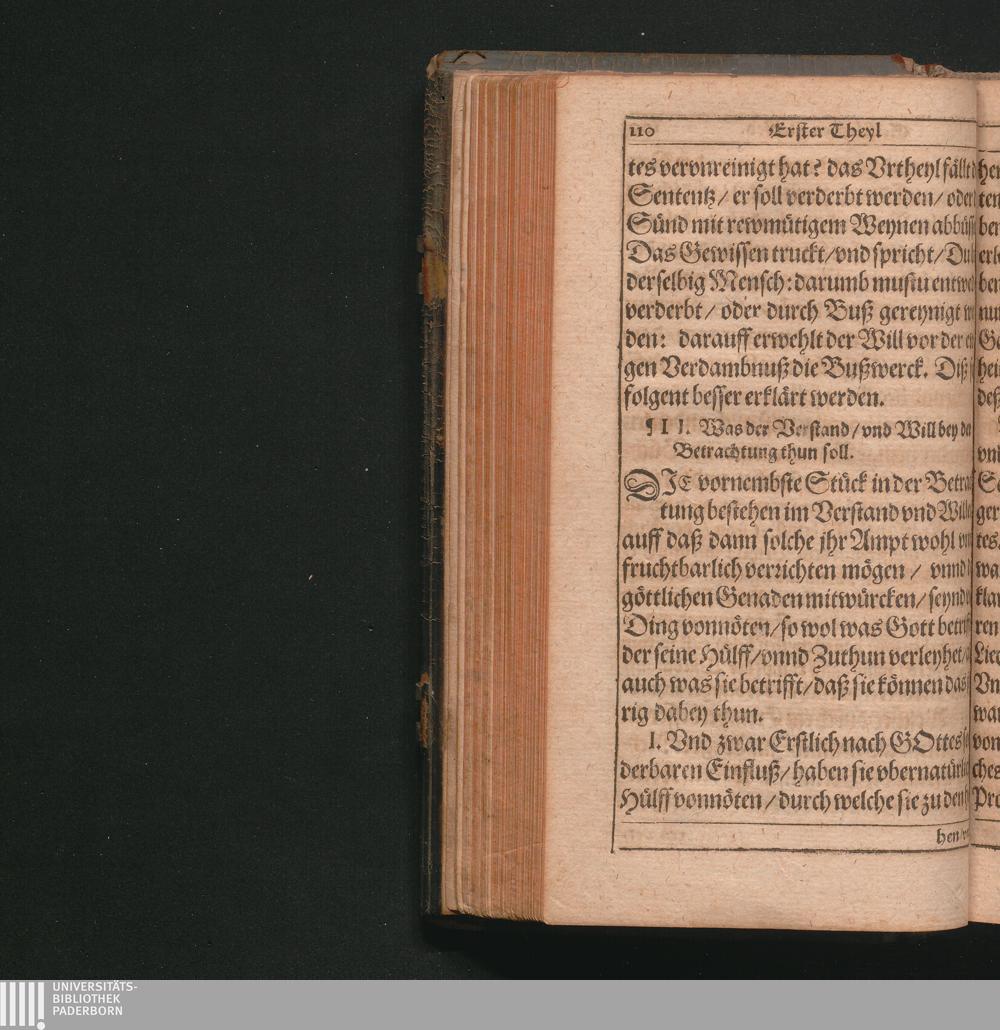 110 Erster Theyl
tes vervnreinigt hat? das Vrtheyl fällt
Sententz/ er soll verderbt werden/ oder
Sünd mit rewmütigem Weynen
Das Gewissen truckt/vnd spricht/Du
derselbig Mensch: darumb mustu
verderbt/ oder durch Buß gereynigt
den: darauff erwehlt der Will vor der
gen Verdambnuß die Bußwerck. Diß
folgent besser erklärt werden.
¶ I I I. Was der Verstand/ vnd Will bey
Betrachtung thun soll.
DIE vornembste Stück in der
tung bestehen im Verstand vnd
auff daß dann solche jhr Ampt wohl
fruchtbarlich verrichten mögen/ vnnd
göttlichen Genaden mitwürcken/
Ding vonnöten/so wol was Gott
der seine Hülff/vnnd Zuthun verleyhet/
auch was sie betrifft/daß sie können
rig dabey thun.
I. Vnd zwar Erstlich nach GOttes
derbaren Einfluß/ haben sie
Hülff vonnöten/durch welche sie zu den
hen
UNIVERSITÄTS-
BIBLIOTHEK
PADERBORN